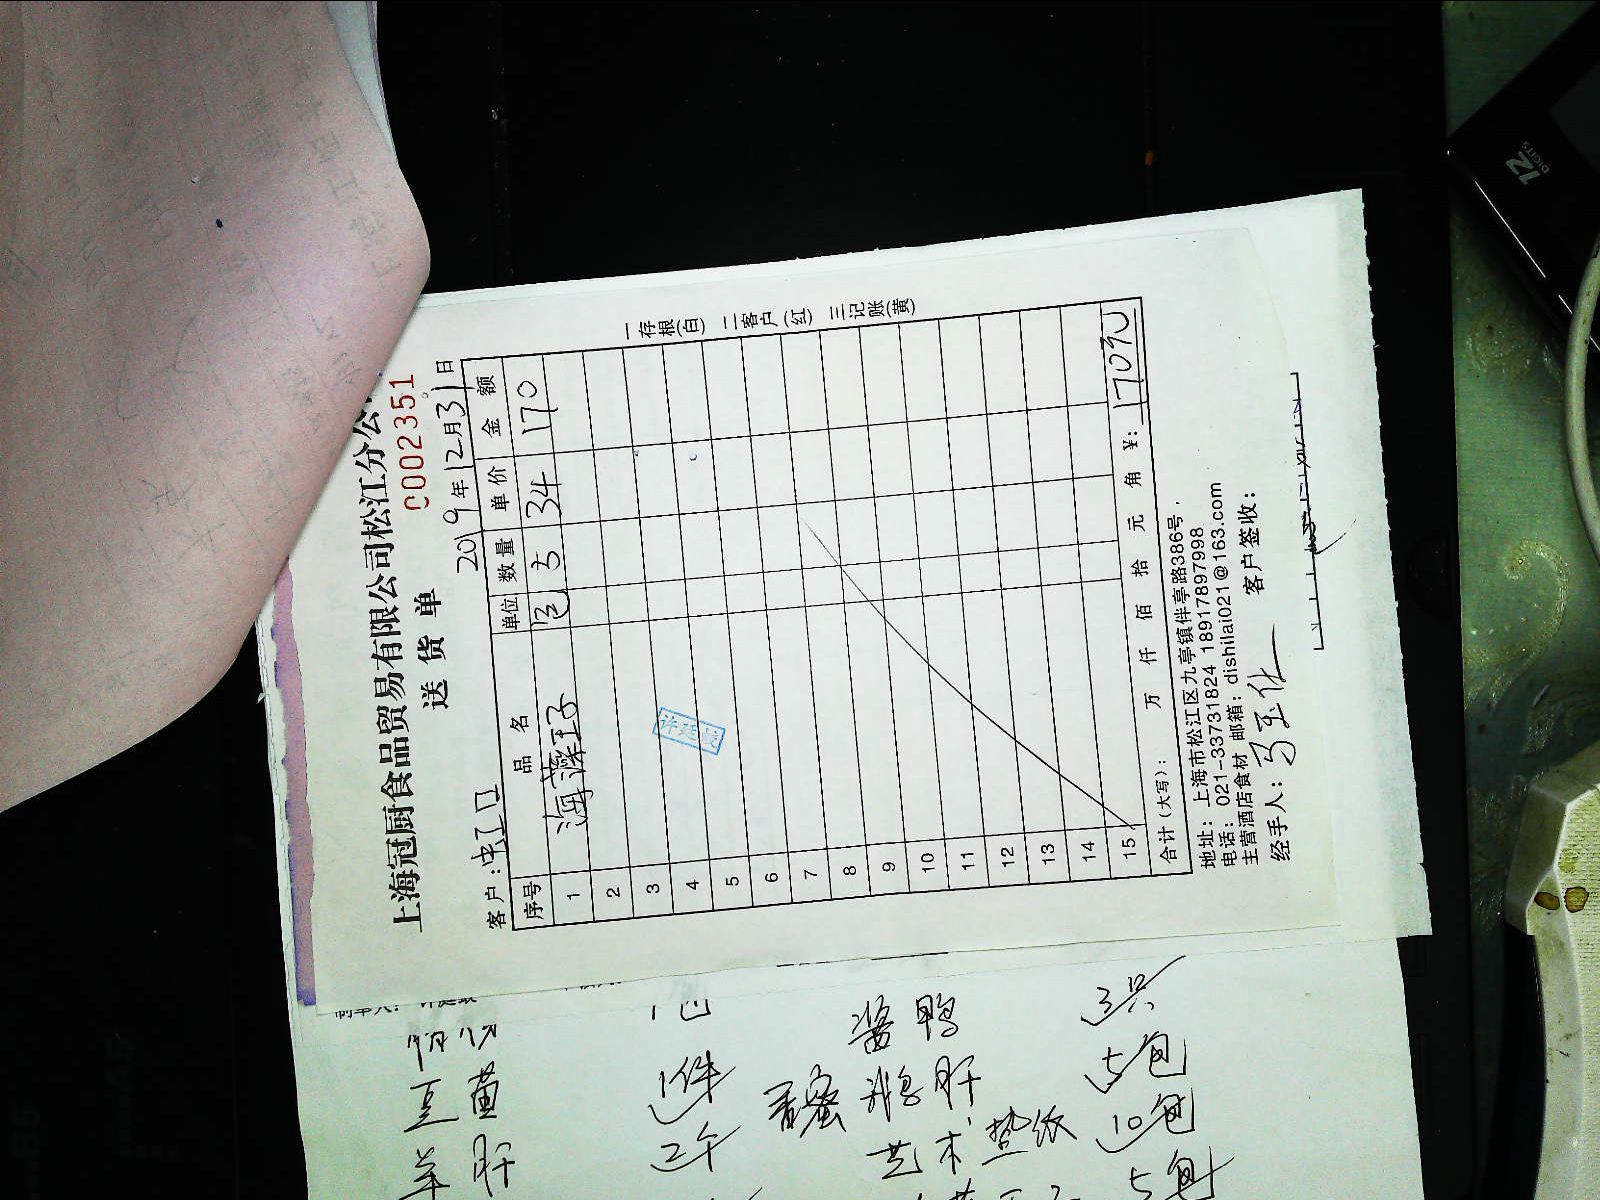 上海冠厨食品贸易有限公司松江分公
送货单
C002351
客户:虹口
2019年12月31日
序号 品名 单位 数量 单价 金额
1 海藻王子 包 5 34 170
2
3
4
5
6
7
8
9
10
11
12
13
14
15
合计(大写): 万 仟 佰 拾 元 角 ¥: 170元
地址: 上海市松江区九亭镇伴亭路386号.
电话: 021-33731824 18917897998
主营酒店食材 邮箱: dishilai021@163.com
经手人: 客户签收:
一存根(白) 二客户(红) 三记账(黄)
许廷
制单人:
酱鸭 3只
豆苗 1件 香蜜鹅肝 5包
羊肝 2个 艺术垫纸 10包
5包
12
DIGITS